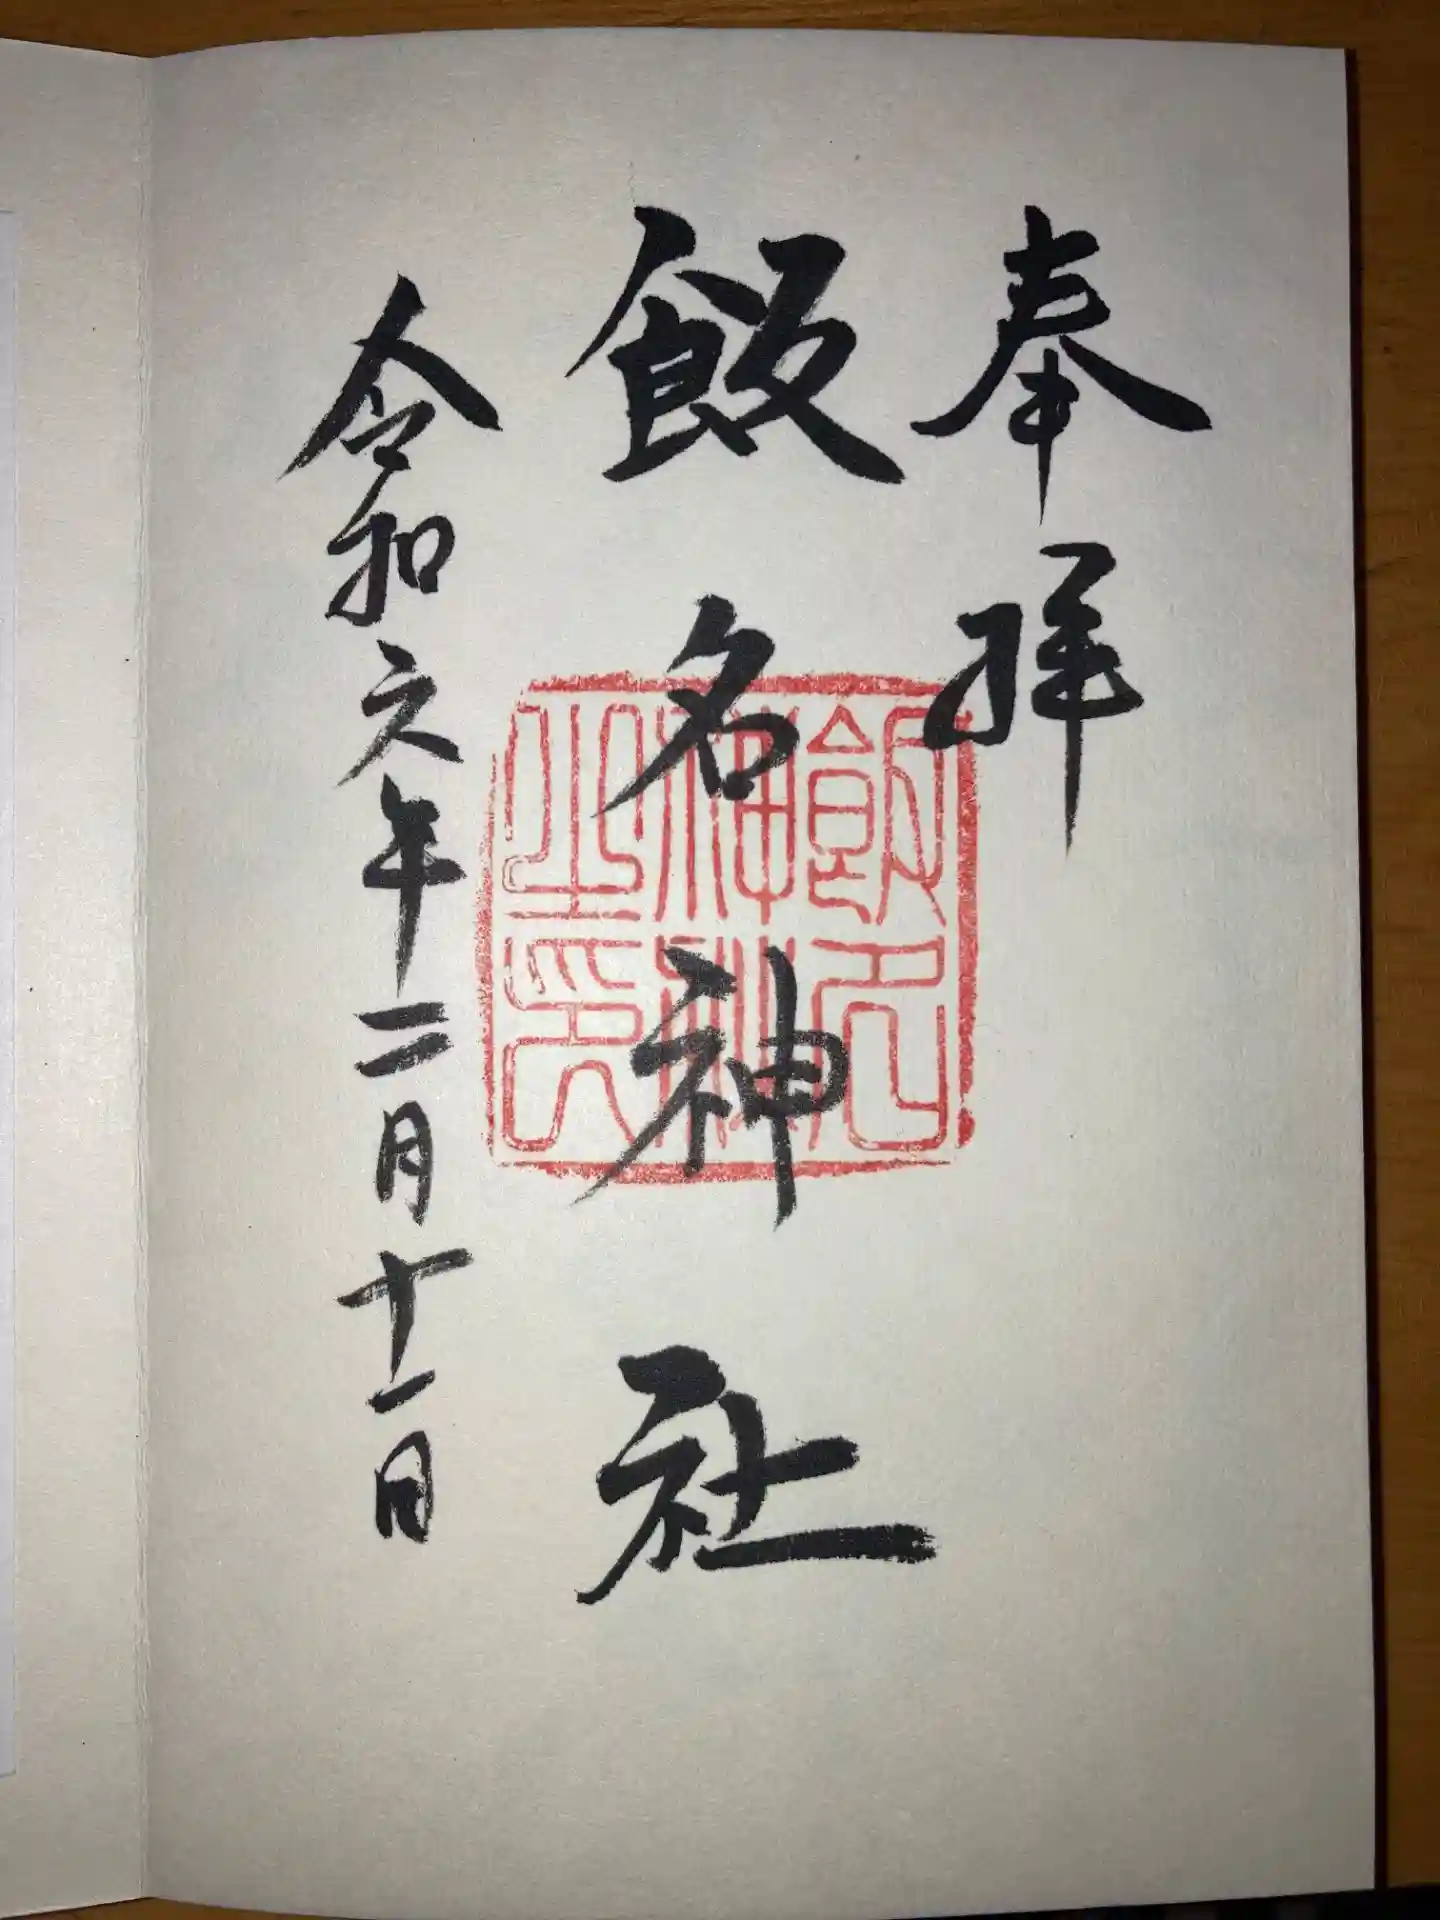 奉拝
飯名神社
令和六年二月十一日
飯名
神社
之印